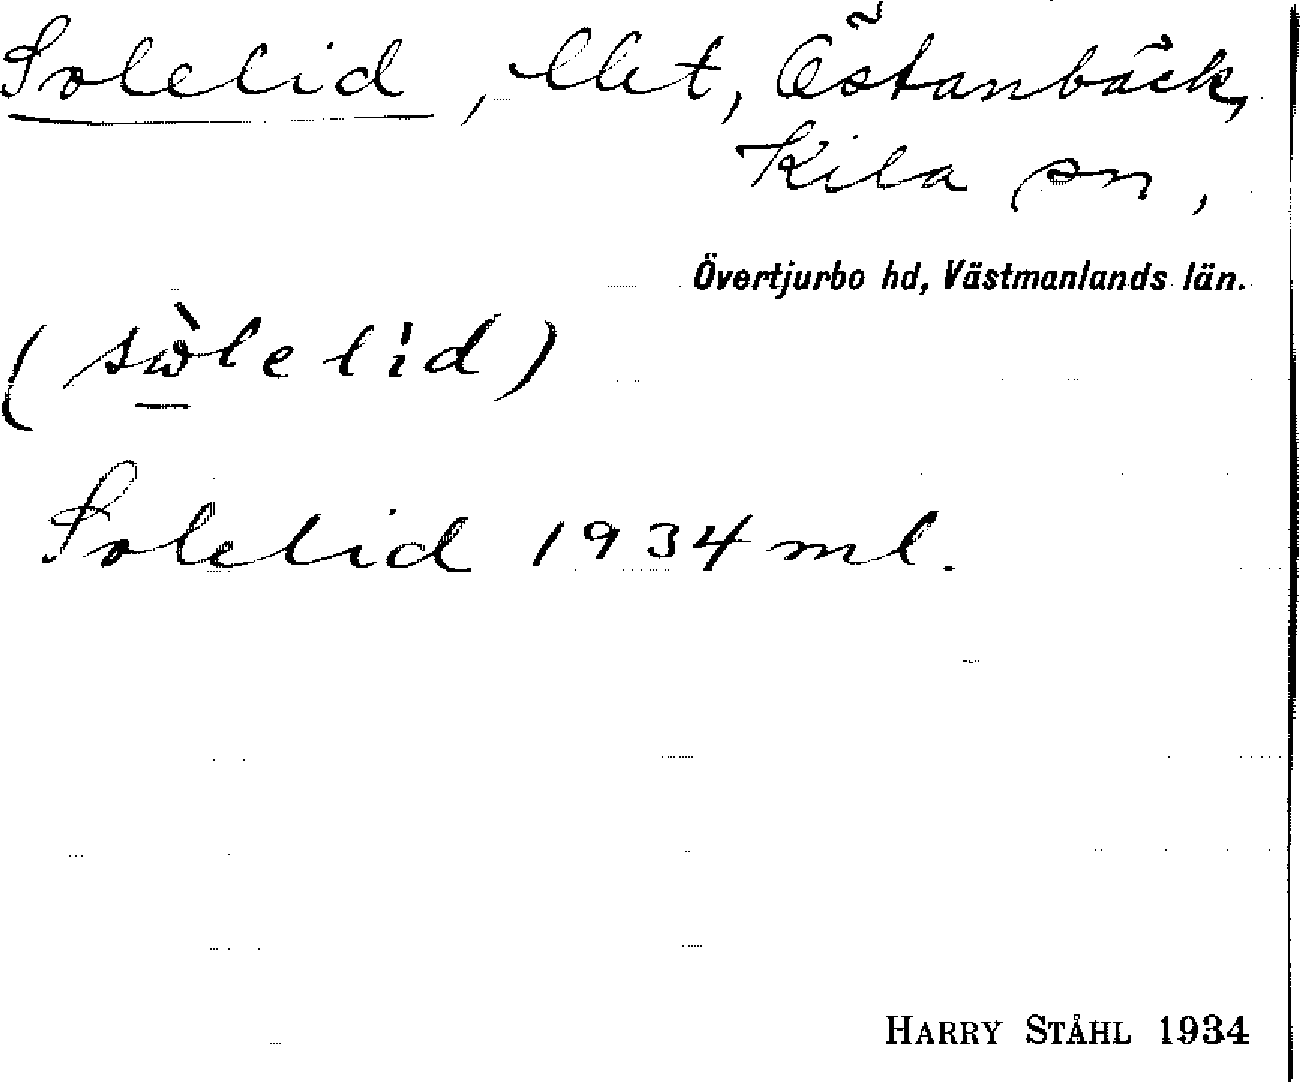 Solelid, lht, Östanbäck,
Kila sn,
Övertjurbo hd, Västmanlands län.
(sòlelid)
Solelid 1934 ml.
HARRY STÅHL 1934